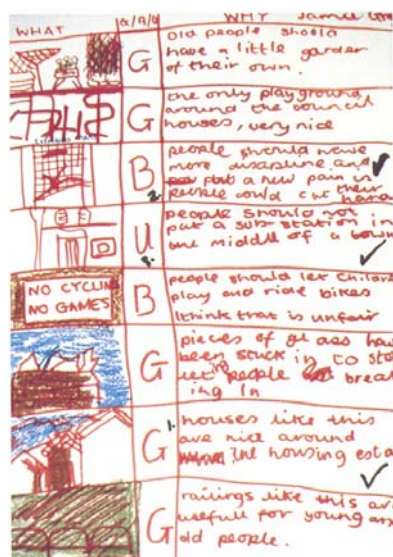 WHAT G/B/U WHY Jamie
G old people should
have a little garden
of their own.
G the only playground
around the council
houses, very nice
B people should have
more discipline and
put a new pain in
people could cut their
hand
2.
U people should not
put a sub-station in
the middle of a
3.
NO CYCLIN
NO GAMES
B people should let childre
play and ride bikes
I think that is unfair
G pieces of glass ha
been stuck in to sto
people break
ing In
G 1. houses like this
are nice around
the housing esta
G railings like this are
usefull for young an
old people.